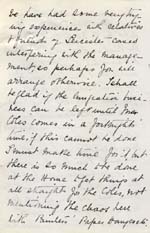 we have had some very try-
ing experiences with relatives
& friends of Leicester cases
interfering with the manage-
ment, so perhaps you will
arrange otherwise. I shall
be glad if the
ness can be left until Mrs
Coles comes in a fortnight's
time; if this cannot be done
I must make time for it, but
there is so much to be done
at the Home to get things at
all straight for the Coles, not
mentioning the chaos here
with Painters', Paper hangers &c